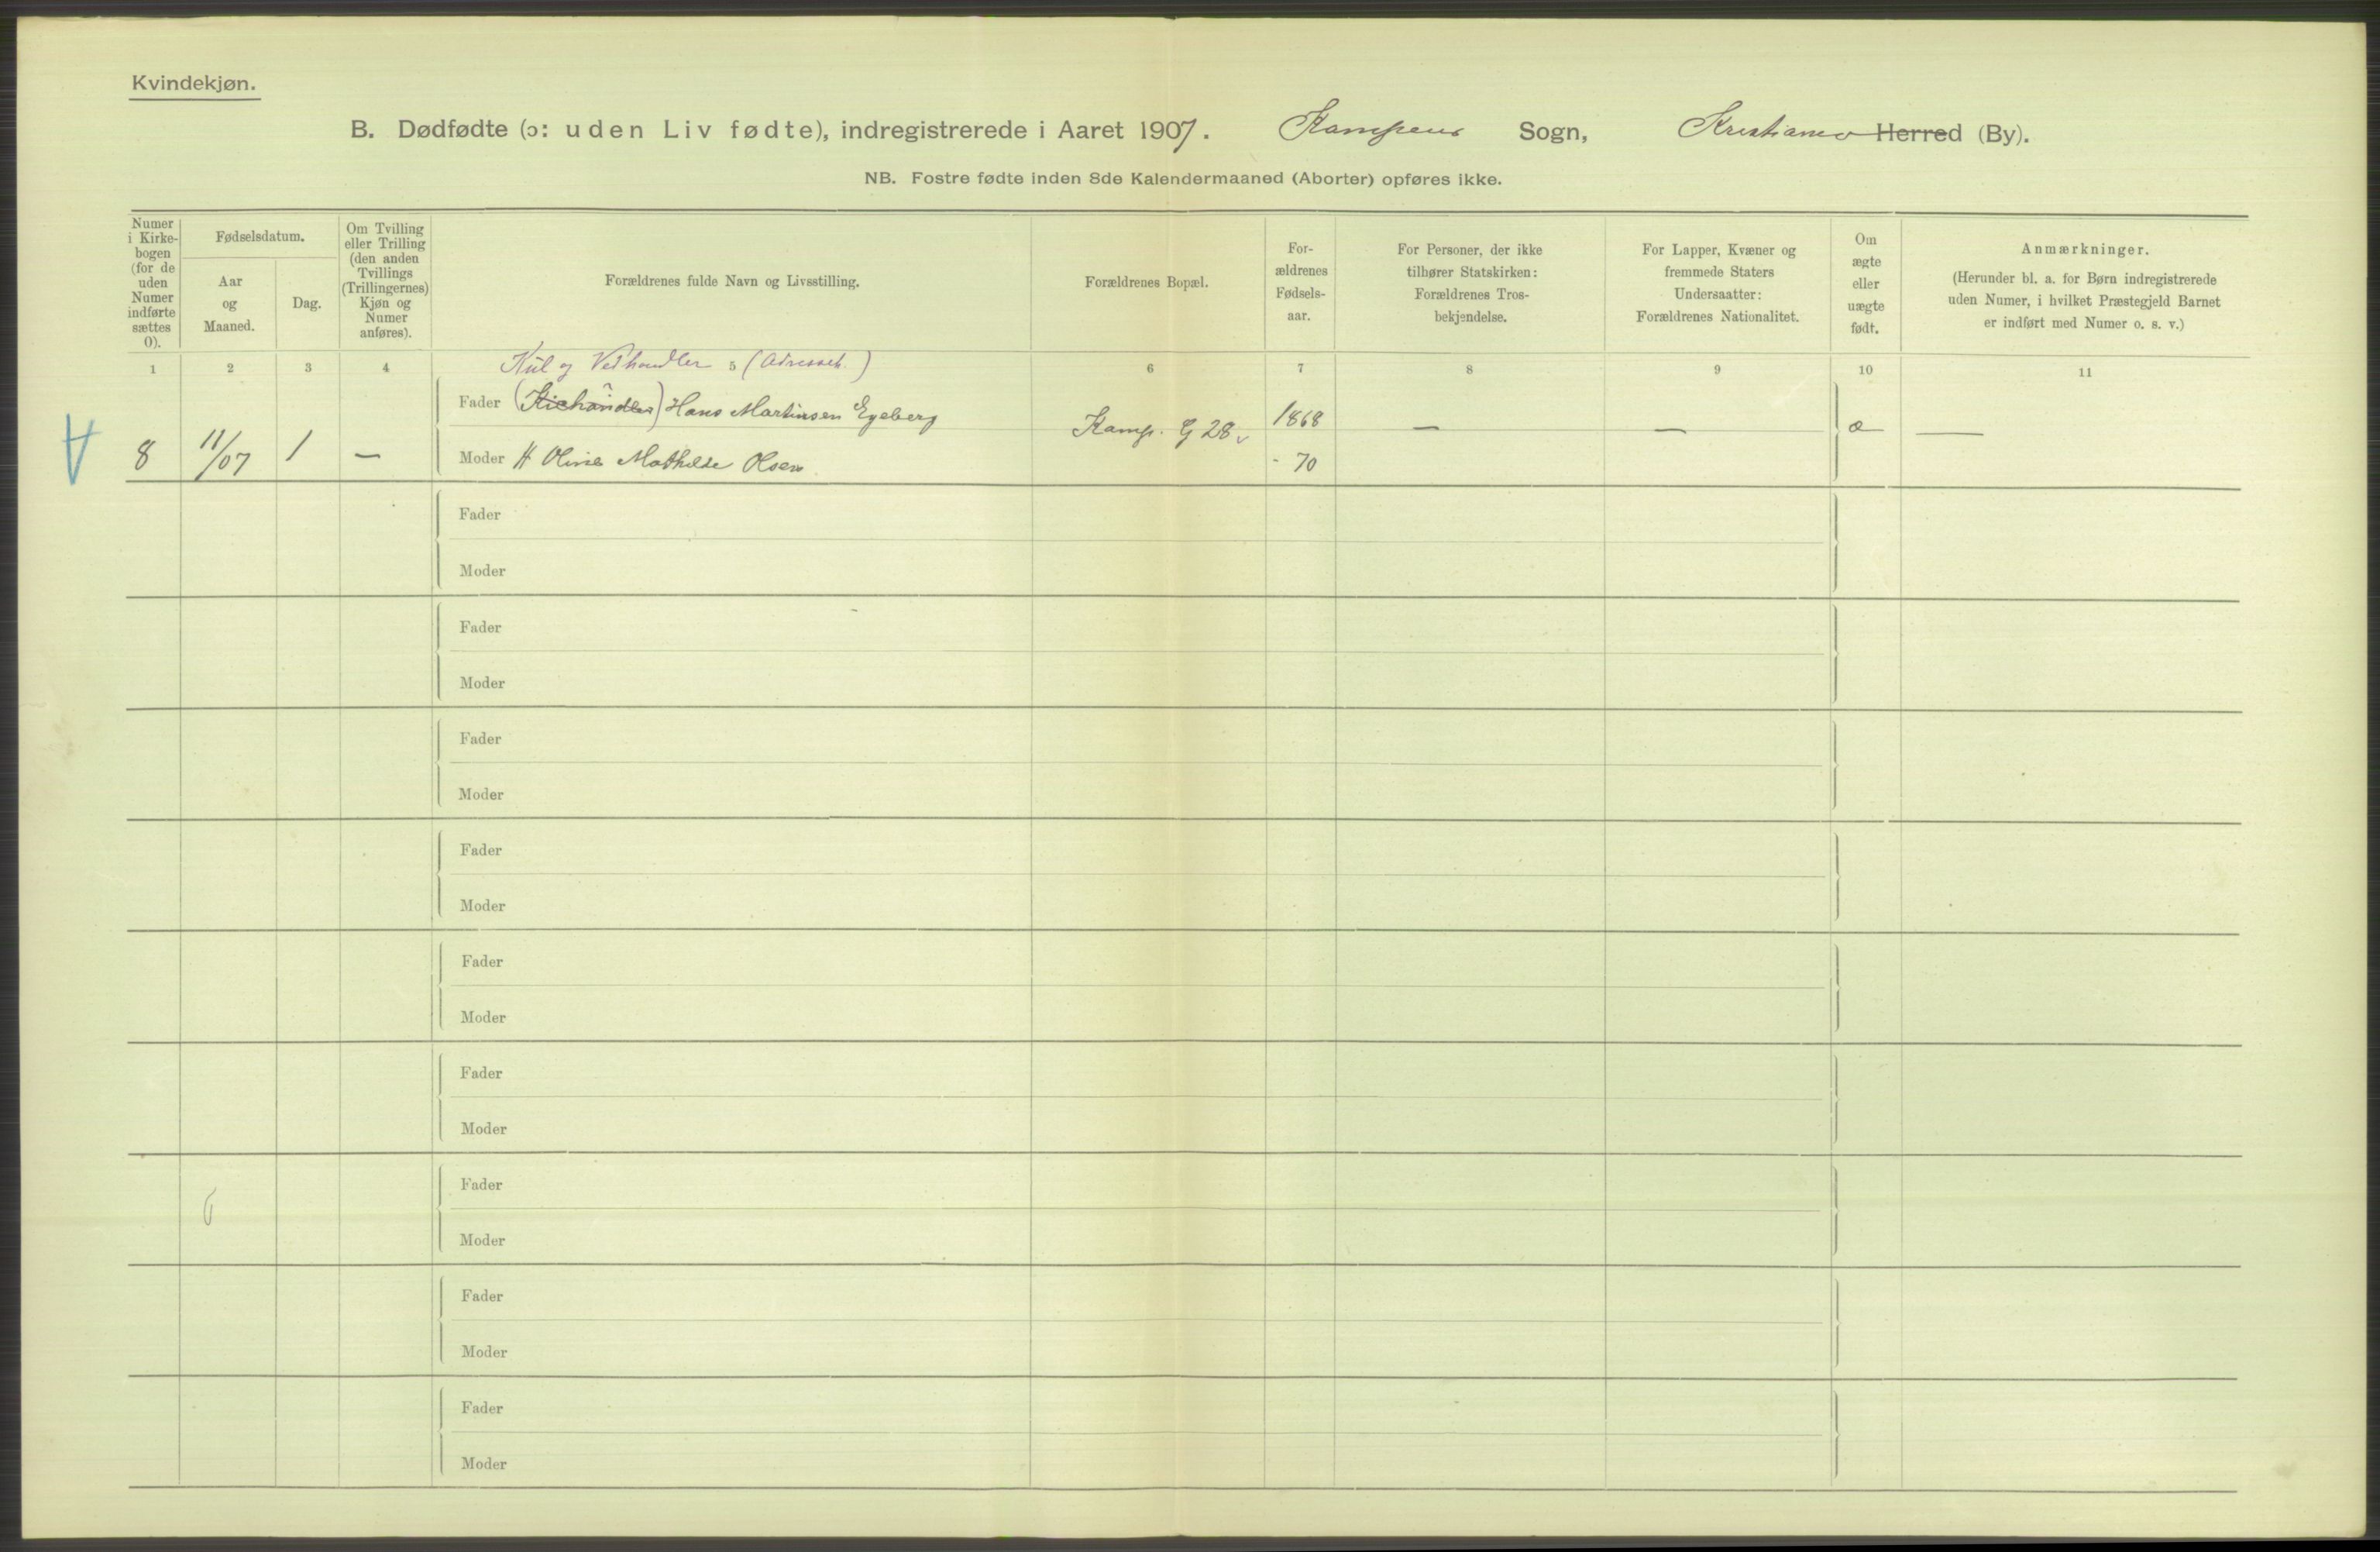 Kvindekjøn.
B. Dødfødte (ɔ: uden Liv fødte), indregistrerede i Aaret 1907. Kampens Sogn, Kristiania Herred (By).
NB. Fostre fødte inden 8de Kalendermaaned (Aborter) opføres ikke.
Numer i Kirke-bogen (for de uden Numer indførte sættes 0).
Fødselsdatum.
Aar og Maaned.
Dag.
Om Tvilling eller Trilling (den anden Tvillings (Trillingernes) Kjøn og Numer anføres).
Forældrenes fulde Navn og Livsstilling.
Forældrenes Bopæl.
For-ældrenes Fødsels-aar.
For Personer, der ikke tilhører Statskirken: Forældrenes Tros-bekjendelse.
For Lapper, Kvæner og fremmede Staters Undersaatter: Forældrenes Nationalitet.
Om ægte eller uægte født.
Anmærkninger.
(Herunder bl. a. for Børn indregistrerede uden Numer, i hvilket Præstegjeld Barnet er indført med Numer o. s. v.)
1 2 3 4 Kul og Vedhandler 5 (Adresseb.) 6 7 8 9 10 11
Fader Hans Martinsen Egeberg Kamp. G 28 1868 — — æ —
8 11/07 1 — Moder H Oline Mathilde Olsen - 70
Fader
Moder
Fader
Moder
Fader
Moder
Fader
Moder
Fader
Moder
Fader
Moder
Fader
6
Moder
Fader
Moder
Fader
Moder